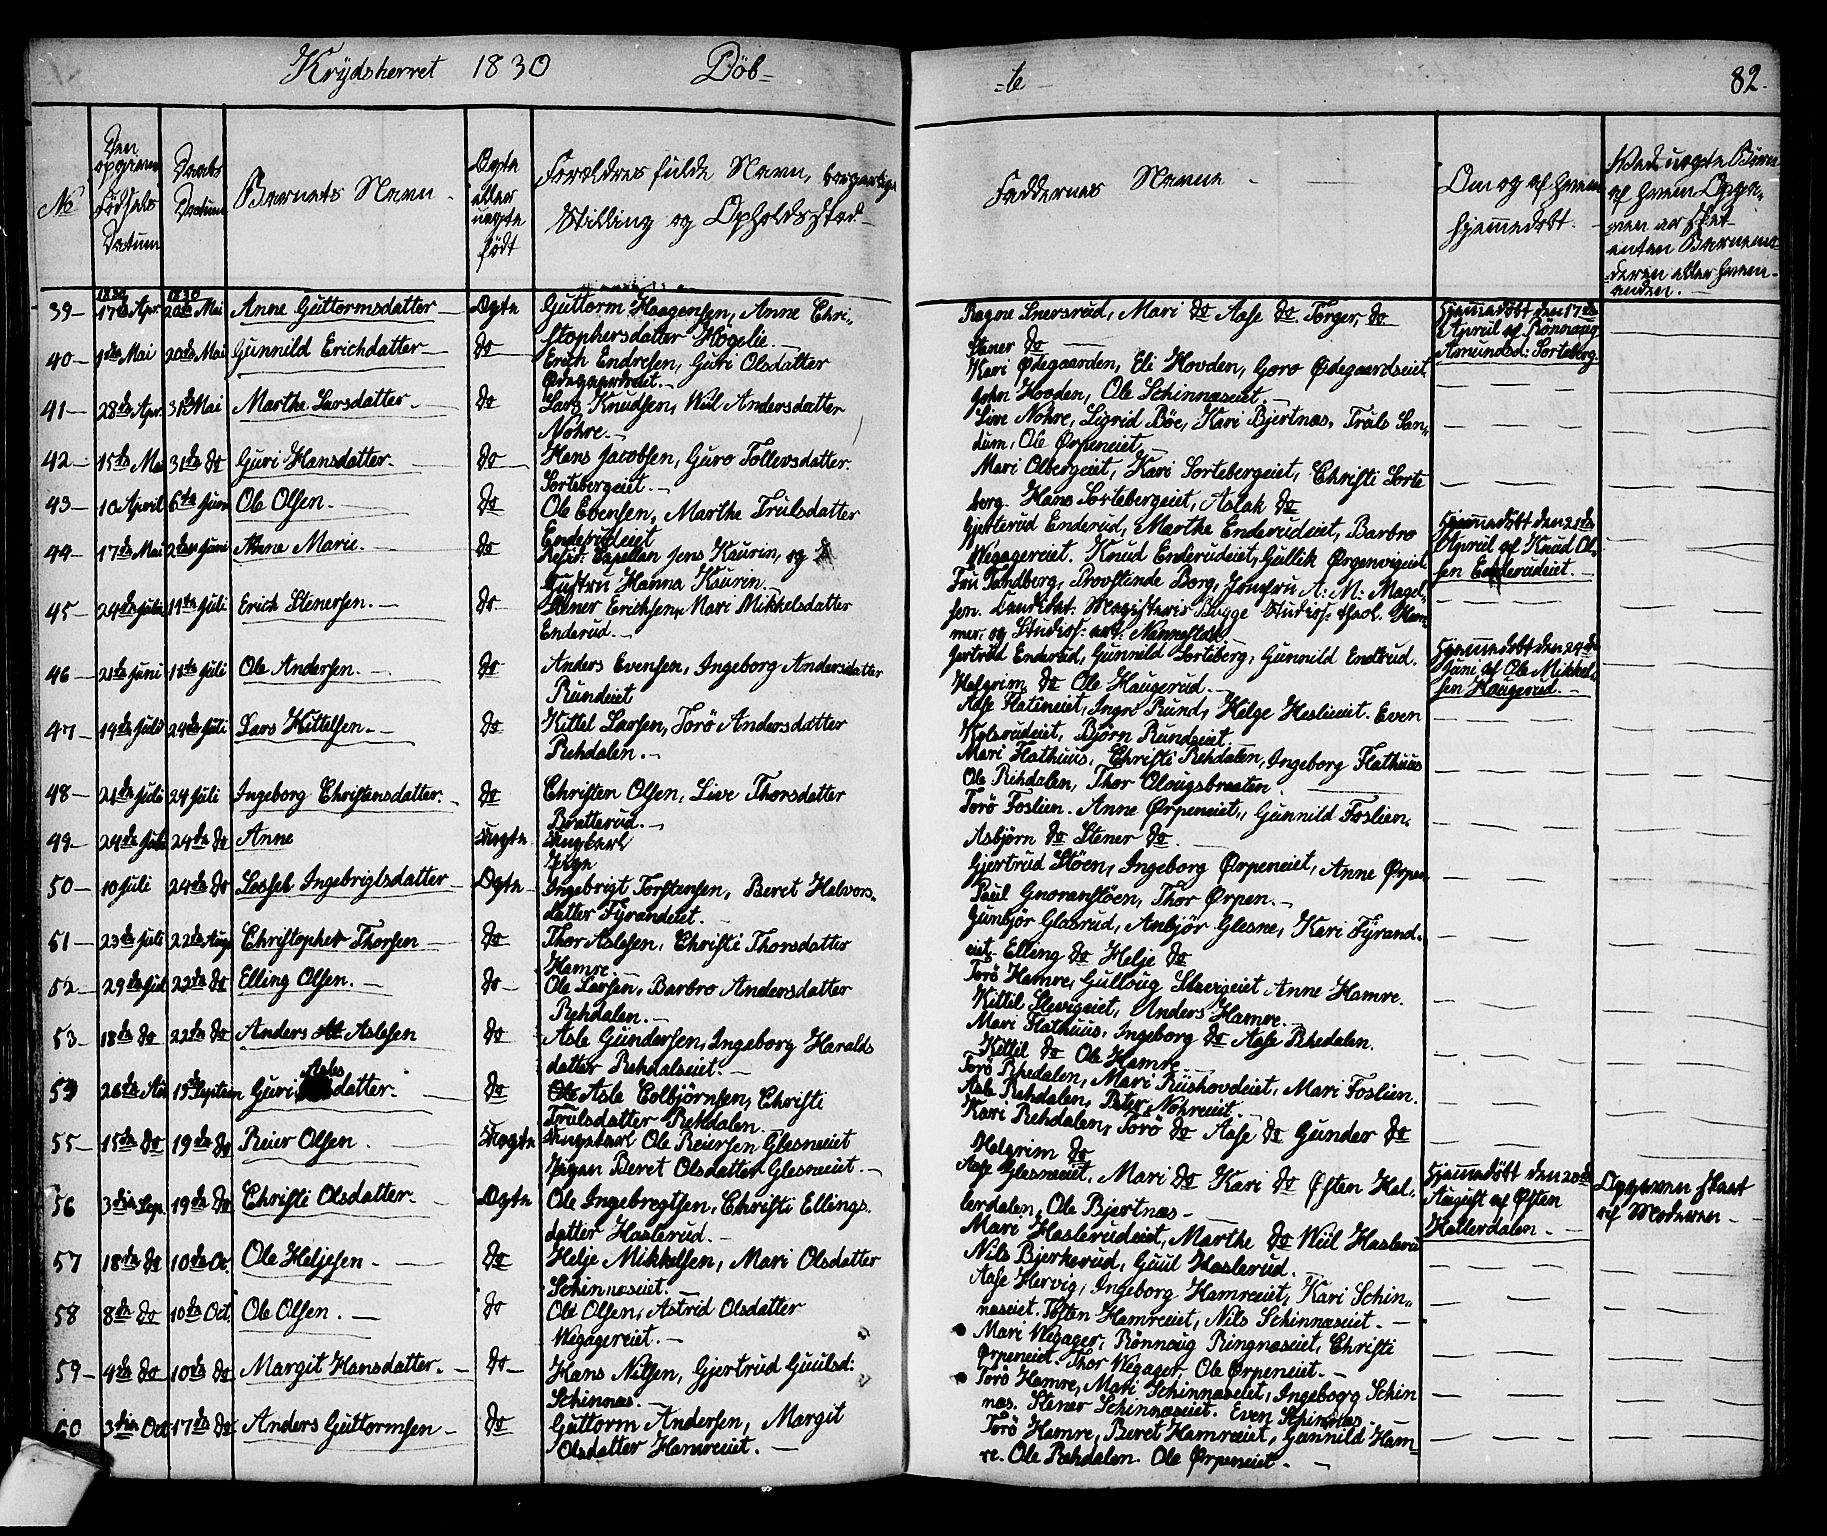 Krydsherret 1830 Döb-
-te- 82.
No
Den opgivne Födsels Datum
Daabs Datum
Barnets Navn.
Ægte eller uægte födt
Forældres fulde Navn, borgerlige
Stilling og Opholdssted
Faddernes Navne
Om og af hvem
hjemmedöbt.
Ved uægte Börn
af hvem Opgi-
velsen er skeet
enten Barnemo-
deren eller hvem
anden.
1830 1830
39 17de Apr. 20de Mai Anne Guttormsdatter Ægte Guttorm Haagensen, Anne Chri-
stophersdatter Kögelie.
Ragne Snersrud, Mari do Aase do. Torger, do
Stener do
Hjemmedöbt den 17de
April af Rönnaug
Asmundsd: Sorteberg.
40 1ste Mai 20de Mai Gunnild Erichdatter do Erich Endresen, Guri Olsdatter
Ödegaardseiet.
Kari Ødegaarden, Eli Hovden, Goro Ødegaardseiet
John Hovden, Ole Schinnaseiet.
41 28de Apr. 31te Mai Marthe Larsdatter. do Lars Knudsen, Kiil Andersdatter
Nohre.
Live Nohre, Sigrid Böe, Kari Bjertnæs, Truls San-
dum, Ole Ørpeneiet
42 15de Mai 31te do Guri Hansdatter. do Hans Jacobsen, Guro Tollevsdatter
Sortebergeiet.
Mari Olbergeiet, Kari Sortebergeiet, Christi Sorte
berg. Hans Sortebergeiet, Aslak do
43 10 April 6te Juni Ole Olsen. do Ole Evensen, Marthe Trulsdatter
Enderudeiet
Gjertrud Enderud, Marthe Enderudeiet, Barbro
Wegagereiet. Knud Enderudeiet, Gullik Ørgenvigeiet
Hjemmedöbt den 21de
April af Knud Ol-
sen Enderudeiet.
44 17de Mai Juni Anne Marie. do Resid: Capellan Jens Kaurin, og
Hustru Hanna Kaurin.
Fru Tandberg, Provstinde Borg, Jomfru A: M: Magel-
sen. Candidat: Magisteris Bugge Studios: theol. Ham-
mer. og Studios: art: Nannestad.
45 24de Juni 11te Juli Erich Stenersen. do Stener Erichsen, Mari Mikkelsdatter
Enderud.
Gjertrud Enderud, Gunnild Sorteberg, Gunnild Endrud.
Helgrim do Ole Haugerud.
Hjemmedöbt den 24de
Juni af Ole Mikkel-
sen Haugerud.
46 21de Juni 11te Juli Ole Andersen. do Anders Evensen, Ingeborg Andersdatter
Rundeiet
Aase Flatineiet, Ingri Rund, Helge Heslieiet. Even
Kolsrudeiet, Björn Rundseiet
47 19de Juli 24de Juli Lars Kittelsen. do Kittel Larsen, Torö Andersdatter
Rehdalen.
Mari Flathuus, Christi Rehdalen, Ingeborg Flathuus
Ole Rehdalen, Thor Olougsbraaten
48 21de Juli 24 Juli Ingeborg Christensdatter. do Christen Olsen, Live Thorsdatter
Bratterud.
Torö Foslien. Anne Ørpeneiet, Gunnild Foslien.
Asbjörn do Stener do
49 24de Juli 24de do Anne Uægte Ungkarl
Pigen
Gjertrud Stöen, Ingeborg Ørpeneiet, Anne Ørpen
Paul Gnoranstöen, Thor Ørpen.
50 10 Juli 24de do Ingebrigtsdatter Ægte Ingebrigt Torstensen, Beret Halvors-
datter Fyrandeiet.
Gunbjör Glasrud, Anbjör Glesne, Kari Fyrand-
eiet, Elling do Helje do
51 23de Juli 22de Aug Christopher Thorsen do Thor Aslesen, Christi Thorsdatter
Hamre.
Torö Hamre, Gulloug Slevigeiet Anne Hamre.
Kittil Slevigeiet, Anders Hamre.
52 29de Juli 22de do Elling Olsen. do Ole Larsen, Barbro Andersdatter
Rehdalen.
Mari Flathuus, Ingeborg do Aase Rhedalen.
Kittil do Ole Hamre
53 18de do 22de do Anders Aslesen do Asle Gundersen, Ingeborg Haralds
datter Rehdalseiet.
Torö Rhedalen, Mari Riishovdeiet, Mari Foslien.
Asle Rehdalen, Peter Nohreeiet.
54 26de Au 19de Septem Guri Aslesdatter. do Asle Colbjörnsen, Christi
Trulsdatter Rehdalen.
Kari Rehdalen, Torö do Aase do Gunder do
Helgrim do
55 15de do 19de do Reier Olsen Uægte Ungkarl Ole Reiersen Glesneeiet
Pigen Beret Olsdatter Glesneeiet.
Aase Glesneeiet, Mari do Kari do Østen Hal-
lerdalen, Ole Bjertnæs
Hjemmedöbt den 20de
August af Østen
Hallerdalen.
Opgiven skeet
af Moderen
56 3die Sep. 19de do Christi Olsdatter. Ægte Ole Ingebregtsen, Christi Ellings-
datter Haslerud.
Mari Haslerudeiet, Marthe do Kiil Haslerud
Nils Bjerkerud, Guul Haslerud.
57 18de do 10de Oc. Ole Heljesen. do Helje Mikkelsen, Mari Olsdatter
Schinnaseiet.
Aase Hervig, Ingeborg Hamreeiet, Kari Schin-
naseiet. Tosten Hamreeiet, Nils Schinnaseiet.
58 8de do 10de Oct. Ole Olsen. do Ole Olsen, Astrid Olsdatter
Wegagereiet.
Mari Wegager, Rönnaug Ringnaseiet, Christi
Ørpeneiet. Thor Wegager, Ole Ørpeneiet.
59 4de do 10de do Margit Hansdatter. do Hans Nilsen, Gjertrud Guulsd:
Schinnas.
Torö Hamre, Mari Schinnaseiet, Ingeborg Schin
nas. Stener Schinnaseiet. Even Schinnas.
60 3die Oct 17de do Anders Guttormsen do Guttorm Andersen, Margit
Olsdatter Hamreeiet.
Torö Hamre, Beret Hamreeiet, Gunnild Ham-
re. Ole Rehdalen. Ole Ørpeneiet